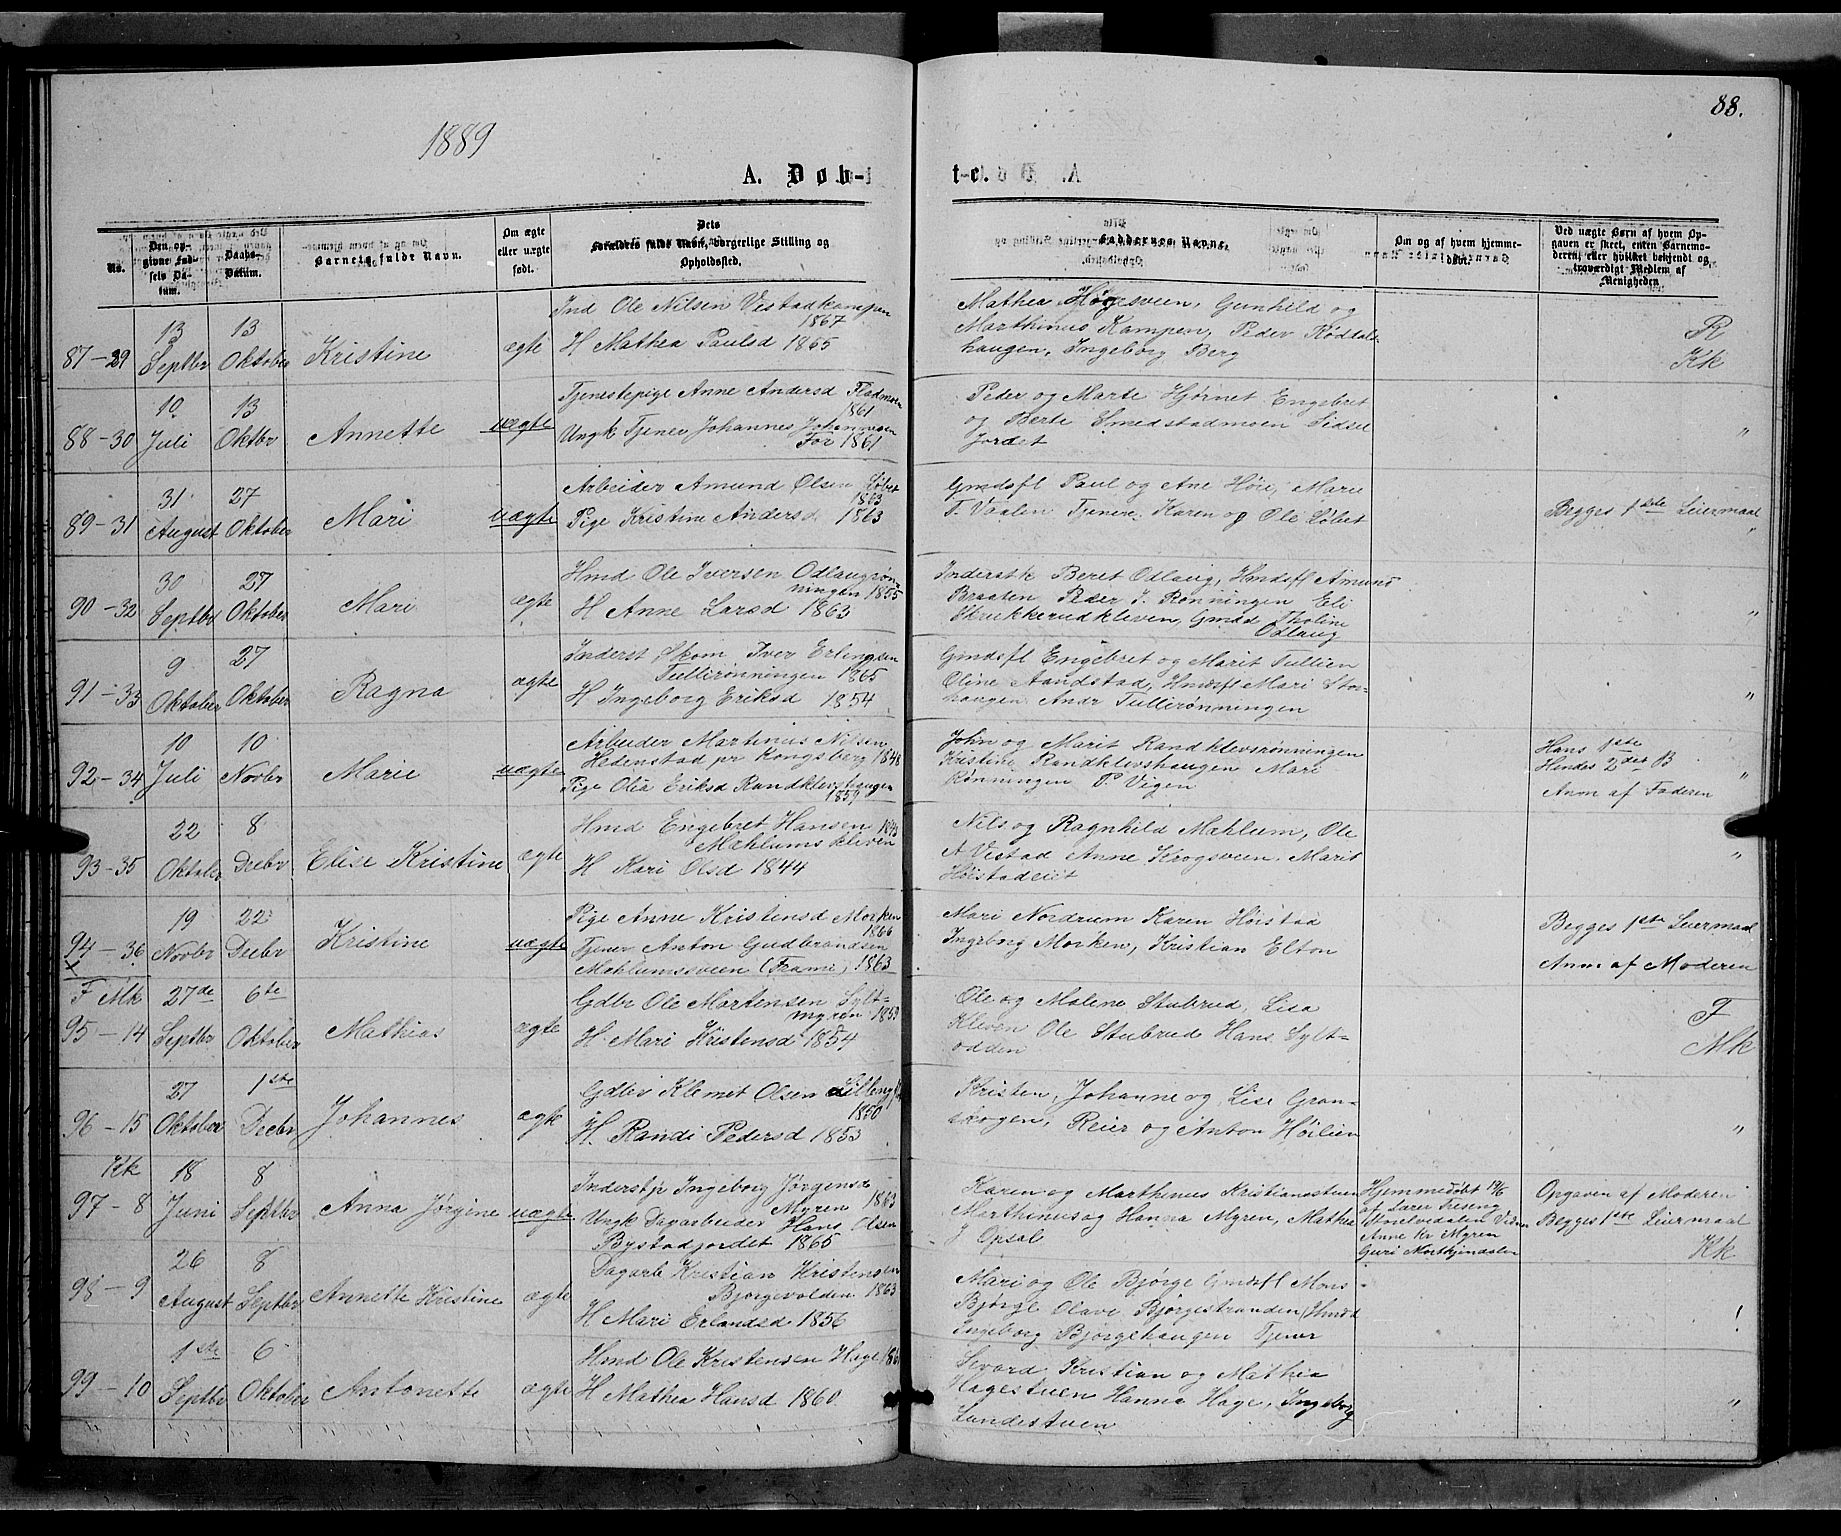 88.
1889
A. Døb-
te.
No.
Den opgivne Fødsels Datum.
Daabs-Datum.
Barnets fulde Navn.
Om ægte eller uægte født.
Dets Forældres fulde Navn, borgerlige Stilling og Opholdssted.
Faddernes Navne.
Om og af hvem hjemmedøbt.
Ved uægte Børn af hvem Opgaven er skeet, enten Barnemoderen, eller hvilket bekjendt og troværdigt Medlem af Menigheden.
87-29
13 Septbr
13 Oktober
Kristine
ægte
Ind Ole Nilsen Vestadkampen 1867
H Mathea Paulsd 1865
Mathea Høgsveen, Gunhild og
Marthinus Kampen, Peder Rødtols-
haugen, Ingeborg Berg
R
Kk
88-30
10 Juli
13 Oktbr
Annette
uægte
Tjenestepige Anne Andersd Fladmoen 1861
Ungk Tjener Johannes Johannesen
For 1861
Peder og Marte Hjørnet Engebret
og Berte Smedstadmoen Sidsel
Jordet
"
89-31
31 August
27 Oktober
Mari
uægte
Arbeider Amund Olsen Løbet 1863
Pige Kristine Andersd 1863
Gmdsfl Paul og Ane Høie, Marie
T. Vaalen Tjener Karen og Ole Løbet
Begges 1ste Leiermaal
"
90-32
30 Septbr
27 Oktober
Mari
ægte
Hmd Ole Iversen Odlaugrøn-
ningen 1855
H Anne Larsd 1863
Inderstk Beret Odlaug, Hmdsfl Amund
Braaten Peder I. Rønningen Eli
Skrukkerudkleven, Gmd Tholine
Odlaug
"
91-33
9 Oktober
27 Oktober
Ragna
ægte
Inderst Skom Iver Erlingsen
Tullirønningen 1865
H Ingeborg Eriksd 1854
Gmdsfl Engebret og Marit Tullien
Oline Aandstad, Hmdsfl Mari Stor-
haugen Andr Tullirønningen
"
92-34
10 Juli
10 Novbr
Marie
uægte
Arbeider Martinus Nilsen
Hedenstad pr Kongsberg 1848
Pige Olia Eriksd Randklevshaugen
1859
John og Marit Randklevsrønningen
Kristine Randklevshaugen Mari
Rønningen P. Vigen
Hans 1ste
Hendes 2det B
Anm af Faderen
"
93-35
22 Oktober
8 Decbr
Elise Kristine
ægte
Hmd Engebret Hansen 1843
Mæhlumskleven
H Kari Olsd 1844
Nils og Ragnhild Mæhlum, Ole
A Vestad Anne Krogsveen, Marit
Høistadeiet
"
94-36
x
19 Novbr
22 Decbr
Kristine
uægte
Pige Anne Kristensd Morken
1866
Tjener Anton Gudbrandsen
Mæhlumssveen (Fram) 1863
Mari Nordrum Karen Høistad
Ingeborg Morken, Kristian Elton
Begges 1ste Leiermaal
Anm af Moderen
F Mk
95-14
27de Septbr
6te Oktober
Mathias
ægte
Gdbr Ole Martensen Sylt-
myren 1853
H Mari Kristensd 1854
Ole og Malene Stubrud, Lisa
Kleven Ole Stubrud Hans Sylt-
odden
F
Mk
96-15
27 Oktober
1ste Decbr
Johannes
ægte
Gdbr Klemet Olsen
1850
H. Randi Pedersd 1853
Kristen, Johanne og Lise Gran-
skogen, Reier og Anton Høilien
"
Kk
97-8
18 Juni
8 Septbr
Anna Jørgine
uægte
Inderstp Ingeborg Jørgensd
Myren 1863
Ungk Dagarbeider Hans Olsen
Bystadjordet 1865
Karen og Marthinus Kristianestuen
Marthinus og Hanna Myren, Mathea
J Opsal
Hjemmedøbt 19/6
af Lærer Treseng
Anne Kr Myren
Guri
Opgaven af Moderen
Begges 1ste Leiermaal
Kk
98-9
26 August
8 Septbr
Annette Kristine
ægte
Dagarb Kristian Kristensen
Bjørgevolden 1863
H Mari Erlandsd 1856
Mari og Ole Bjørge Gmdsfl Mons
Bjørge Olave Bjørgestranden, Hmd
Ingeborg Bjørgehaugen Tjener
99-10
1ste Septbr
6 Oktober
Antonette
ægte
Hmd Ole Kristensen Hage
H Mathea Hansd 1860
Sevard Kristian og Mathia
Hagestuen Hanna Hage, Ingeborg
Lundestuen
"